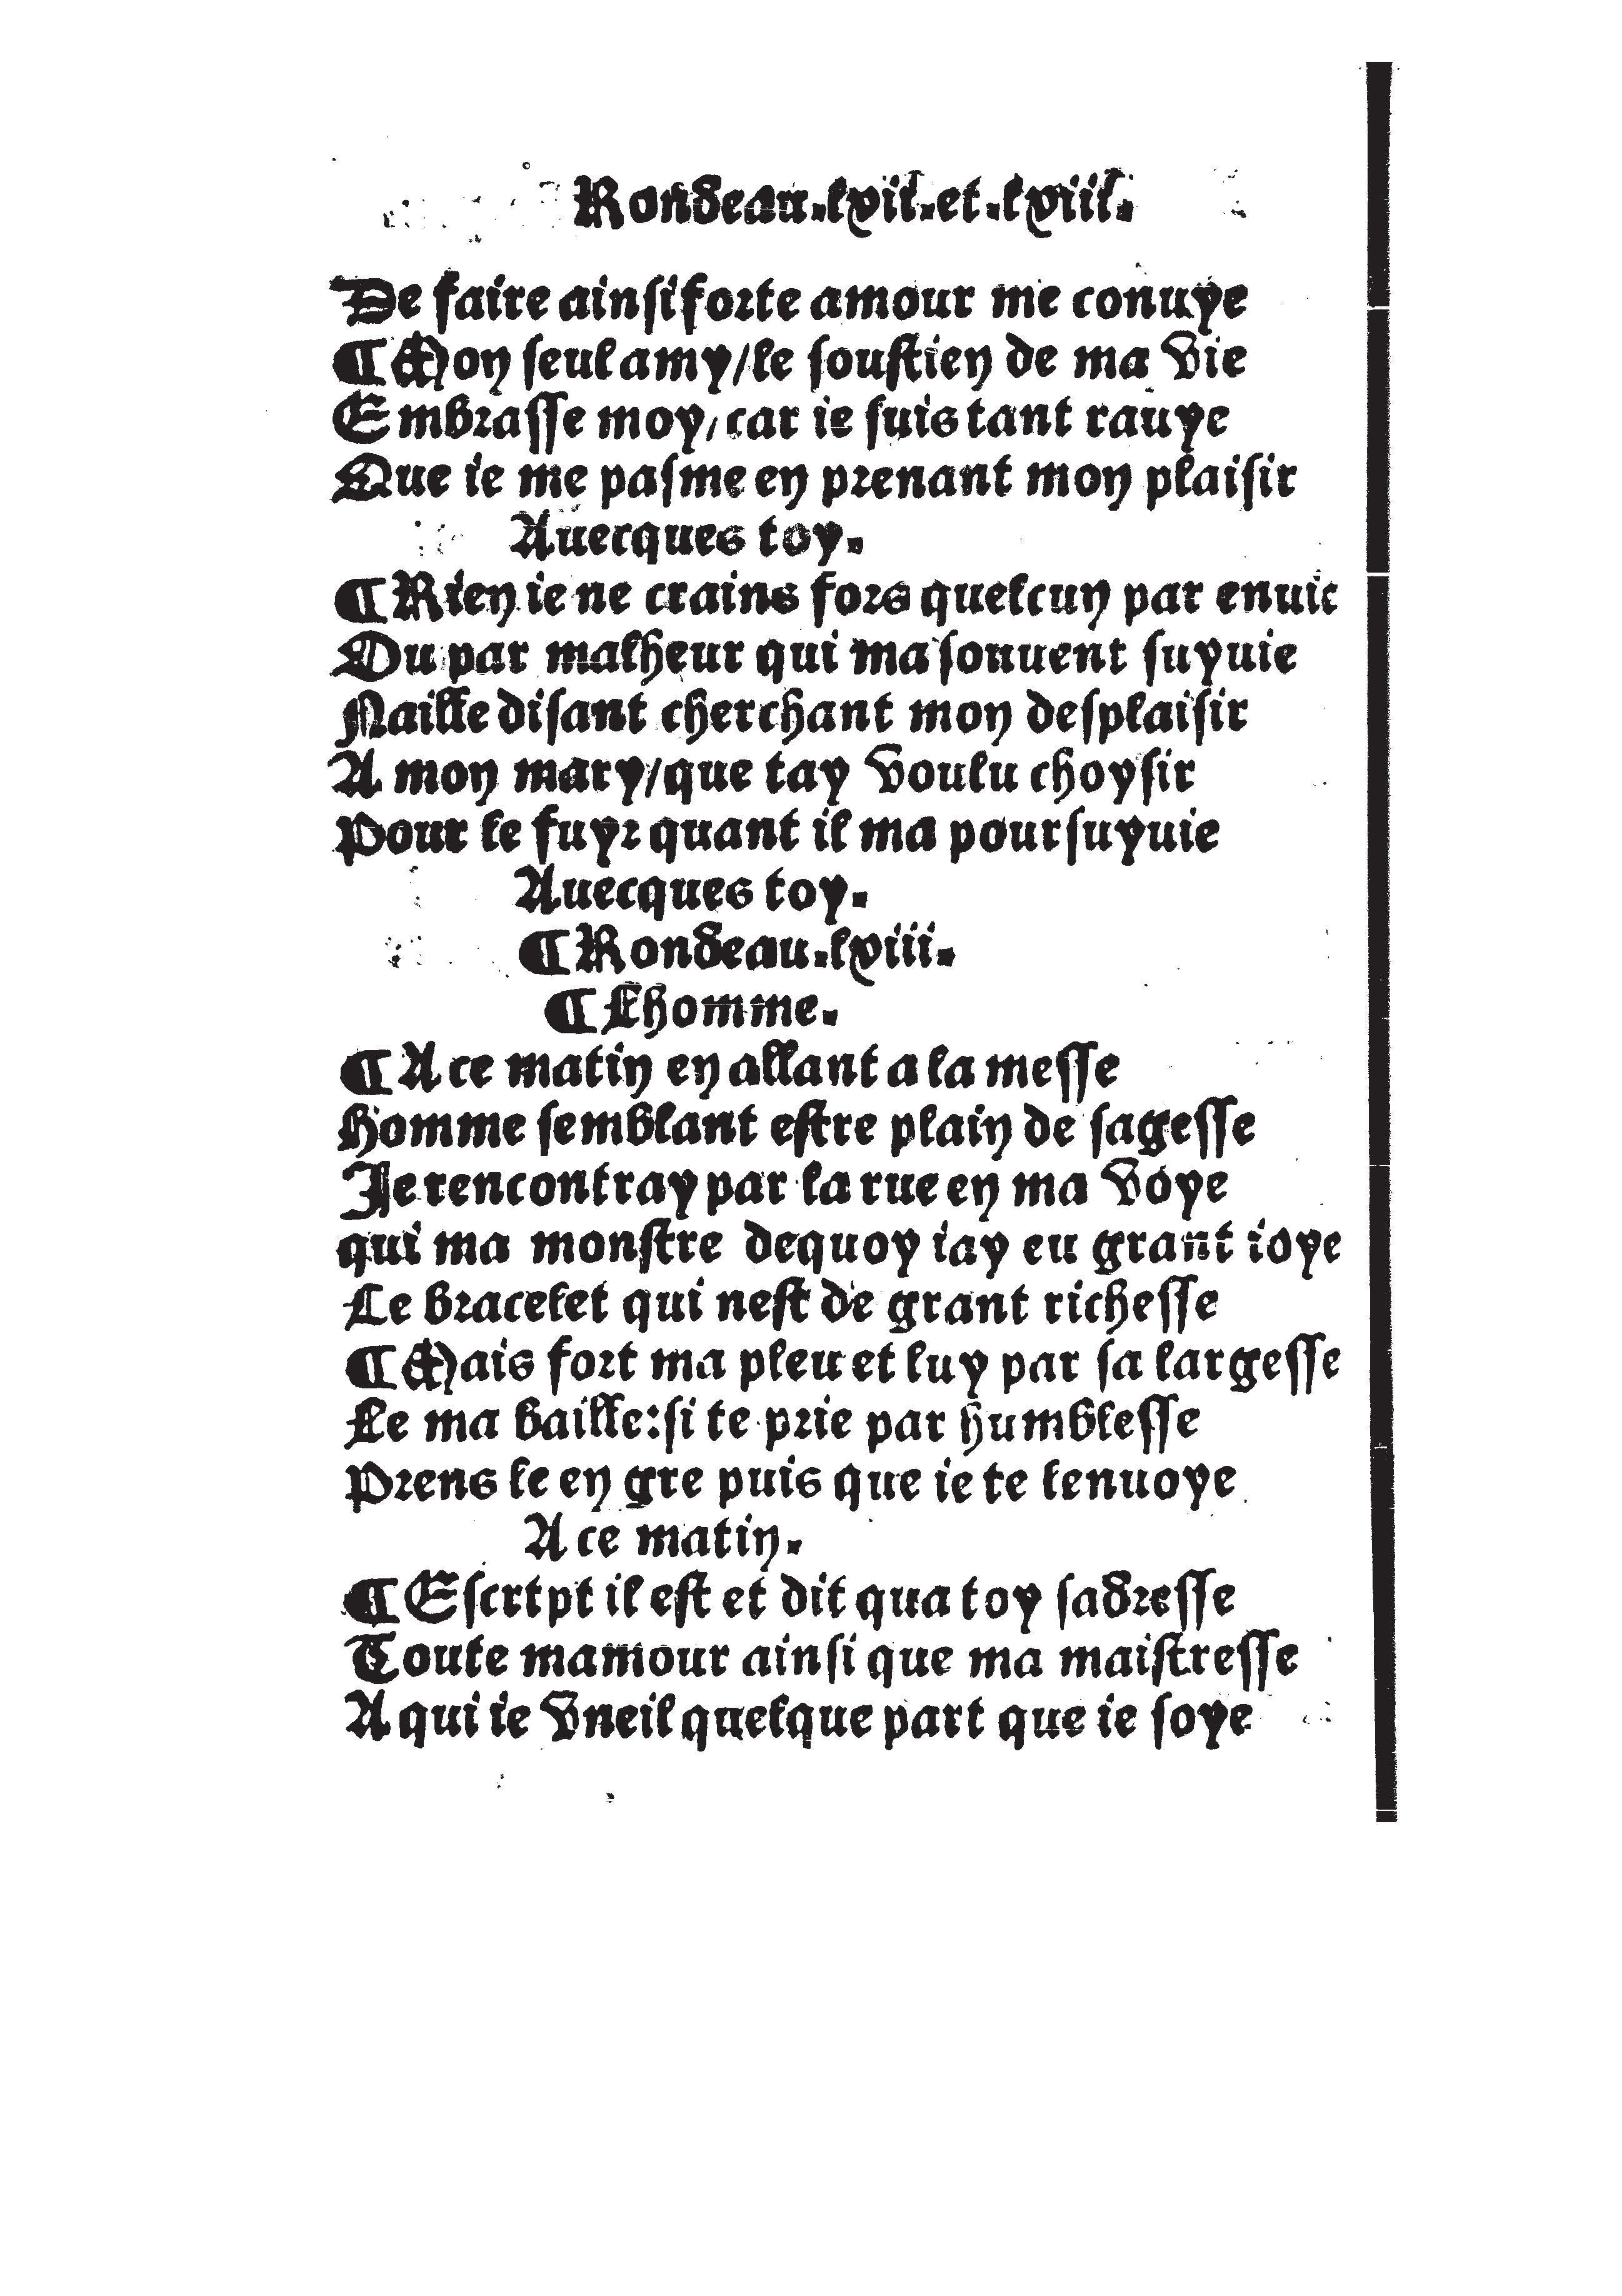 Rondeau.lvii.et.lviii.
De faire ainsi forte amour me conuye
¶ Mon seul amy/le soustien de ma vie
Embrasse moy, car ie suis tant rauye
Que ie me pasme en prenant mon plaisir
Auecques toy.
¶ Rien ie ne crains fors quelcun par enuie
Ou par malheur qui ma souuent suyuie
Naille disant cherchant mon desplaisir
A mon mary/que tay voulu choysir
Pour le fuyr quant il ma poursuyuie
Auecques toy.
¶ Rondeau.lviii.
¶ Lhomme.
¶ A ce matin en allant a la messe
Homme semblant estre plain de sagesse
Je rencontray par la rue en ma voye
qui ma monstre dequoy iay eu grant ioye
Le bracelet qui nest de grant richesse
¶ Mais fort ma pleu et luy par sa largesse
Le ma baille:si te prie par humblesse
Prens le en gre puis que ie te lenuoye
A ce matin.
¶ Escrtpt il est et dit qua toy sadresse
Toute mamour ainsi que ma maistresse
A qui ie vneil quelque part que ie soye